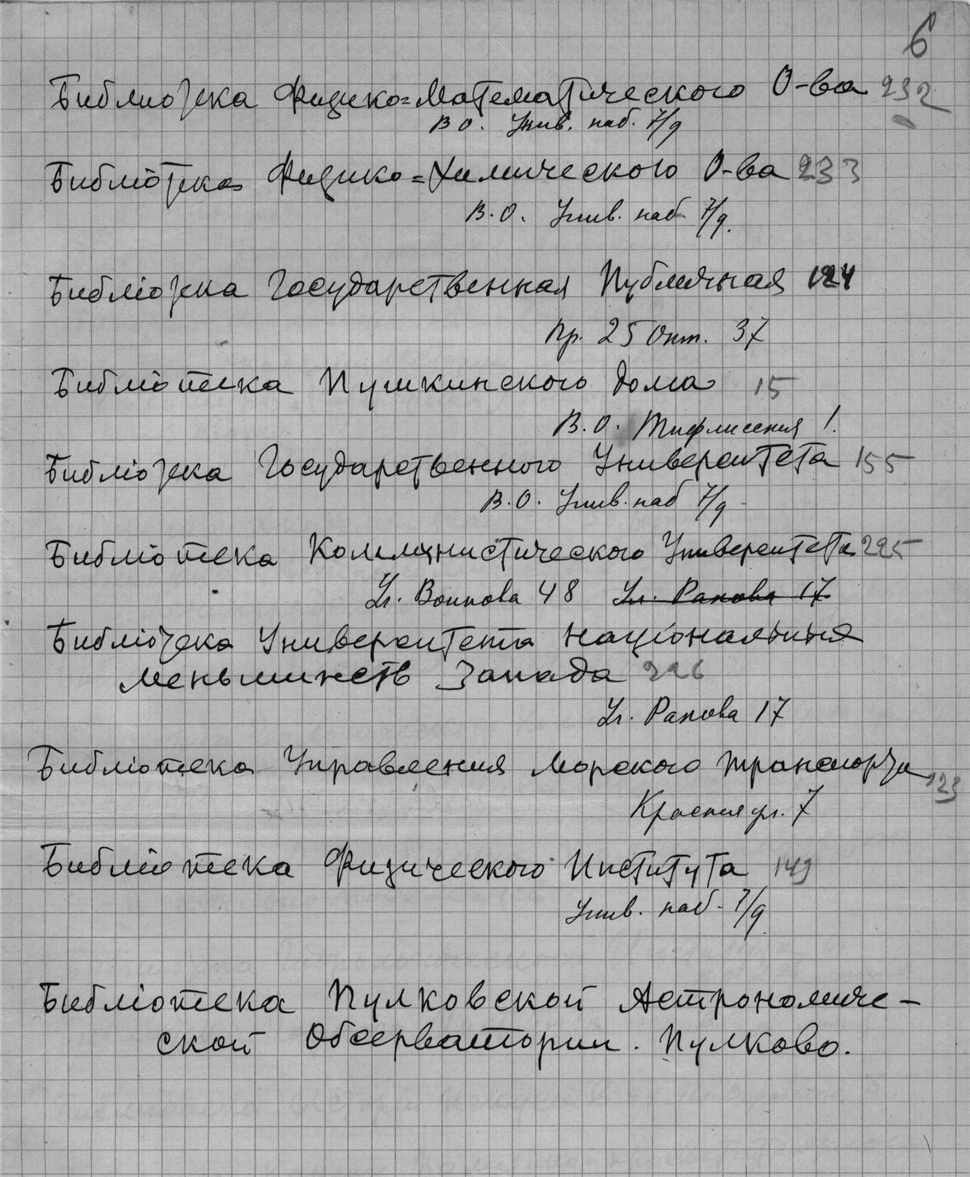 6
Библиотека Физико=Математического О-ва 232
В О. Унив. наб. 7/9
Библіотека Физико=Химического О-ва 233
В.О. Унив. наб. 7/9.
Библіотека Государственная Публичная 124
Пр. 25 Окт. 37
Библіотека Пушкинского дома 15
В.О. Тифлисская 1.
Библіотека Государственного Университета 155
В.О. Унив. наб 7/9
Библіотека Коммунистического Университета 225
Ул. Воинова 48 Ул. Ракова 17
Библіотека Университета Націоналыныя
меньшинств Запада 226
Ул. Ракова 17
Библіотека Управления Морского транспорта 123
Красная ул. 7
Библіотека Физического Института 149
Унив. наб. 7/9
Библіотека Пулковской Астрономиче-
ской Обсерватории. Пулково.